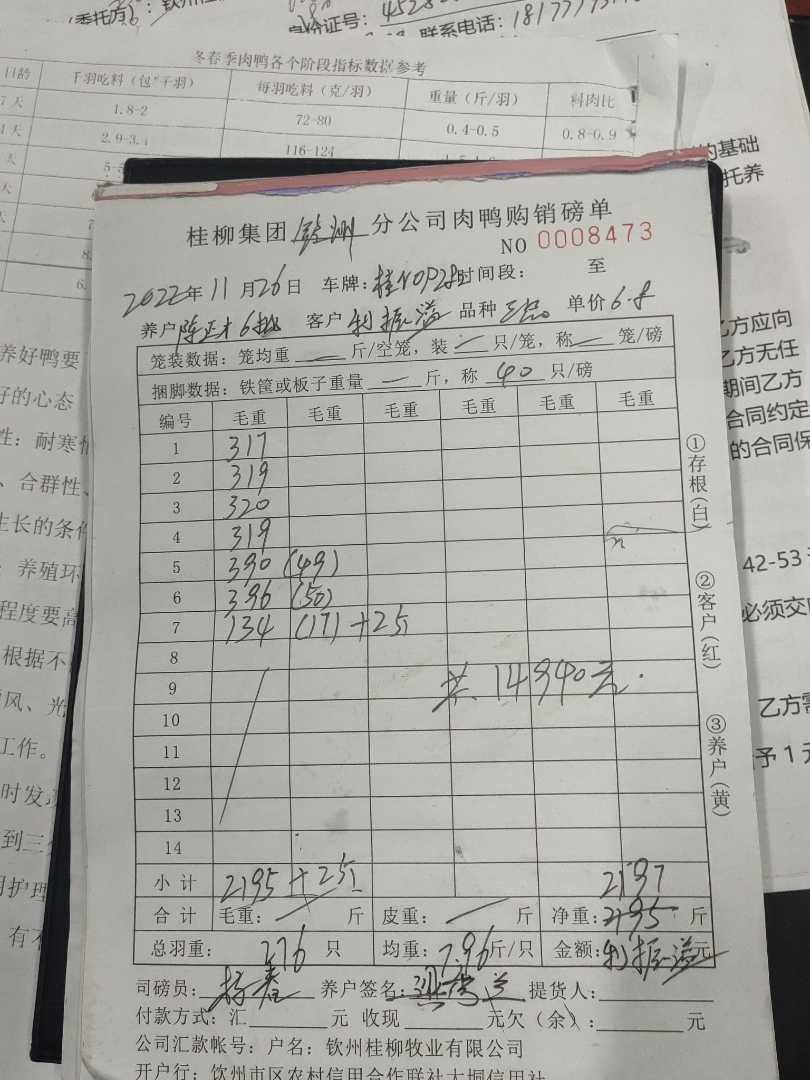 委托方：钦州
身份证号：4528
联系电话：1817
冬春季肉鸭各个阶段指标数据参考
日龄 千羽吃料（包*千羽） 每羽吃料（克/羽） 重量（斤/羽） 料肉比
7天 1.8-2 72-80 0.4-0.5 0.8-0.9
天 2.9-3.4 116-124
的基础
托养
桂柳集团 钦州 分公司肉鸭购销磅单
NO 0008473
2022年11月26日 车牌： 时间段： 至
养户 陈正才6批 客户 利振溢 品种 单价 6.8
笼装数据：笼均重 — 斤/空笼，装 — 只/笼，称 — 笼/磅
捆脚数据：铁筐或板子重量 — 斤，称 40 只/磅
编号 毛重 毛重 毛重 毛重 毛重 毛重
1 317
2 319
3 320
4 319
5 390 (49)
6 396 (50)
7 134 (17) +2斤
8
9 共14940元.
10
11
12
13
14
小计 2195+2斤 2197
合计 毛重： 斤 皮重： 斤 净重：2195 斤
总羽重： 276 只 均重：7.96 斤/只 金额：利振溢 元
司磅员： 养户签名： 提货人：
付款方式：汇 元 收现 元欠（余）： 元
公司汇款帐号：户名：钦州桂柳牧业有限公司
开户行：钦州市区农村信用合作联社大垌信用社
①存根（白）
②客户（红）
③养户（黄）
养好鸭要
好的心态
性：耐寒
、合群性、
生长的条件
养殖环
程度要高
根据不
风、光
工作。
时发
到三
护理
有不
乙方应向
乙方无任
期间乙方
合同约定
的合同保
42-53
必须交
乙方需
予1元